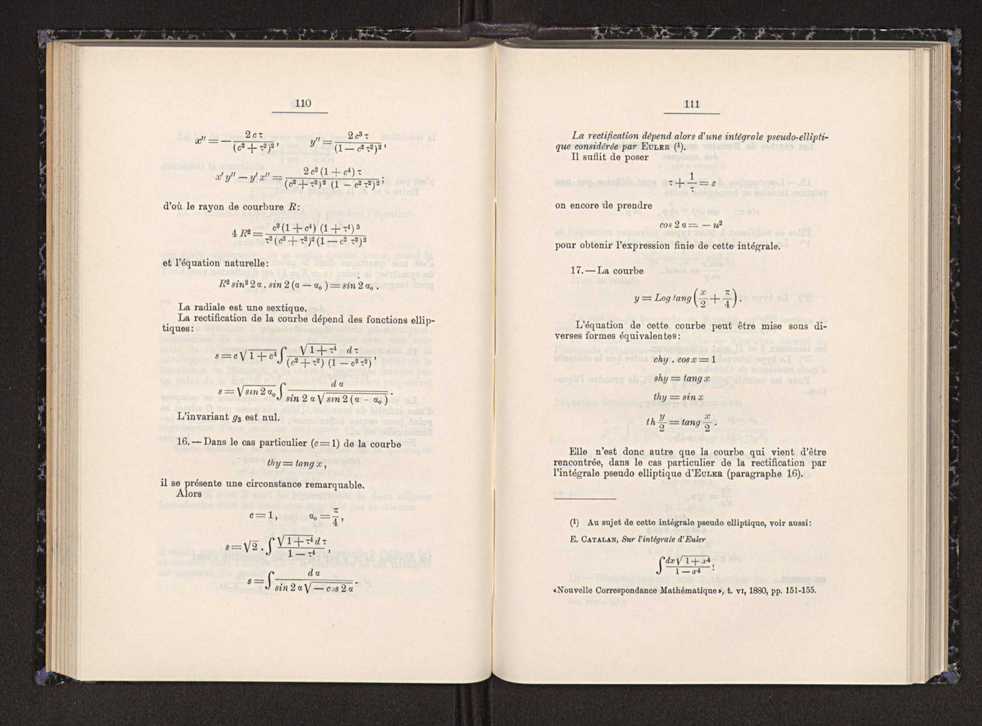 110
x'' = − 2 c τ / (c² + τ²)², y'' = 2 c³ τ / (1 — c² τ²)²,
x' y'' — y' x'' = 2 c² (1 + c⁴) τ / (c² + τ²)² (1 — c² τ²)²;
d'où le rayon de courbure R:
4 R² = c² (1 + c⁴) (1 + τ⁴)³ / τ² (c² + τ²)² (1 — c² τ²)²
et l'équation naturelle:
R² sin³ 2 α . sin 2 (α — α₀) = sin 2 α₀ .
La radiale est une sextique.
La rectification de la courbe dépend des fonctions ellip-
tiques:
s = c √1 + c⁴ ∫ √1 + τ⁴ d τ / (c² + τ²) (1 — c² τ²) ,
s = √sin 2 α₀ ∫ d α / sin 2 α √sin 2 (α — α₀) .
L'invariant g₃ est nul.
16. — Dans le cas particulier (c = 1) de la courbe
thy = tang x ,
il se présente une circonstance remarquable.
Alors
c = 1, α₀ = π / 4 ,
s = √2 . ∫ √1 + τ⁴ d τ / 1 — τ⁴ ,
s = ∫ d α / sin 2 α √— cos 2 α .
111
La rectification dépend alors d'une intégrale pseudo-ellipti-
que considérée par EULER (¹).
Il suffit de poser
τ + 1 / τ = z
on encore de prendre
cos 2 α = — u²
pour obtenir l'expression finie de cette intégrale.
17. — La courbe
y = Log tang ( x / 2 + π / 4 ) .
L'équation de cette courbe peut être mise sous di-
verses formes équivalentes:
chy . cos x = 1
shy = tang x
thy = sin x
th y / 2 = tang x / 2 .
Elle n'est donc autre que la courbe qui vient d'être
rencontrée, dans le cas particulier de la rectification par
l'intégrale pseudo elliptique d'EULER (paragraphe 16).
(¹) Au sujet de cette intégrale pseudo elliptique, voir aussi:
E. CATALAN, Sur l'intégrale d'Euler
∫ dx √1 + x⁴ / 1 — x⁴ ,
«Nouvelle Correspondance Mathématique», t. VI, 1880, pp. 151-155.